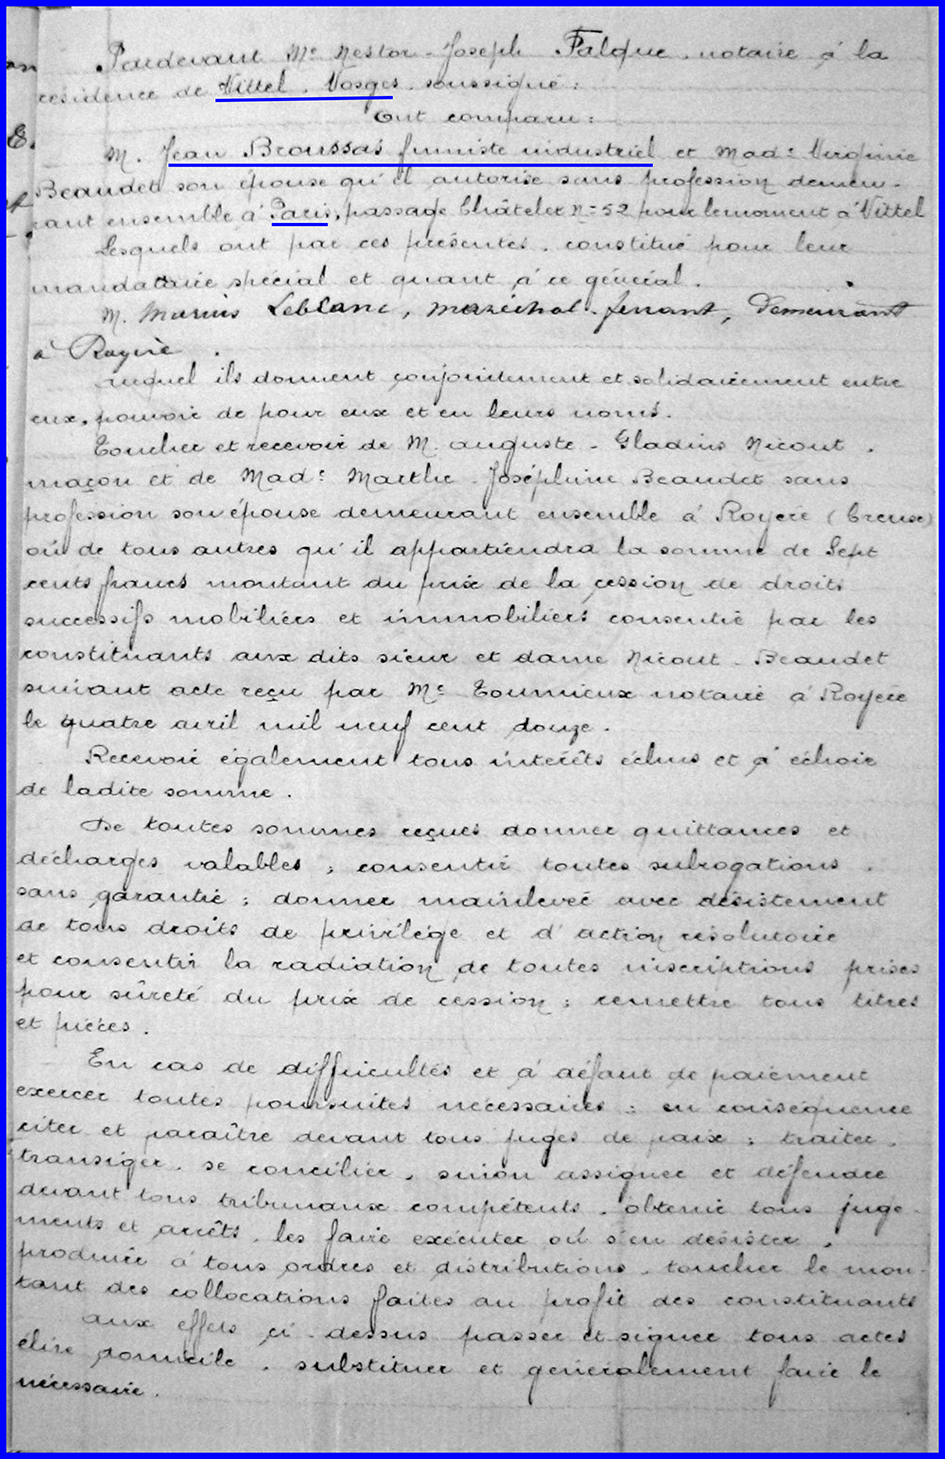 Pardevant Me Nestor-Joseph Falque, notaire à la
résidence de Vittel, Vosges, soussigné:
Ont comparu:
M. Jean Broussas fumiste industriel et Made Virginie
Beaudet son épouse qu'il autorise sans profession demeu-
rant ensemble à Paris, passage Châtelet n=52 pour le moment à Vittel
Lesquels ont par ces présentes, constitué pour leur
mandataire spécial et quant à ce général.
M. Marius Leblanc, maréchal-ferrant, Demeurant
à Royère.
auquel ils donnent conjointement et solidairement entre
eux, pouvoir de pour eux et en leurs noms.
Toucher et recevoir de M. Auguste-Gladius Nicout,
maçon et de Made Marthe-Joséphine Beaudet sans
profession son épouse demeurant ensemble à Royère (Creuse)
où de tous autres qu'il appartiendra la somme de Sept
cents francs montant du prix de la cession de droits
successifs mobiliers et immobiliers consentie par les
constituants aux dits sieur et dame Nicout-Beaudet
suivant acte reçu par Me Toumieux notaire à Royère
le quatre avril mil neuf cent douze.
Recevoir également tous intérêts échus et à échoir
de ladite somme.
De toutes sommes reçues donner quittances et
décharges valables; consentir toutes subrogations,
sans garantie; donner mainlevée avec désistement
de tous droits de privilège et d'action résolutoire
et consentir la radiation de toutes inscriptions prises
pour sûreté du prix de cession; remettre tous titres
et pièces.
En cas de difficultés et à défaut de paiement
exercer toutes poursuites nécessaires; en conséquence
citer et paraître devant tous juges de paix; traiter,
transiger, se concilier, sinon assigner et défendre
devant tous tribunaux compétents, obtenir tous juge-
ments et arrêts, les faire exécuter où s'en désister,
produire à tous ordres et distributions, toucher le mon-
tant des collocations faites au profit des constituants
aux effets ci-dessus passer et signer tous actes
élire domicile, substituer et généralement faire le
nécessaire.